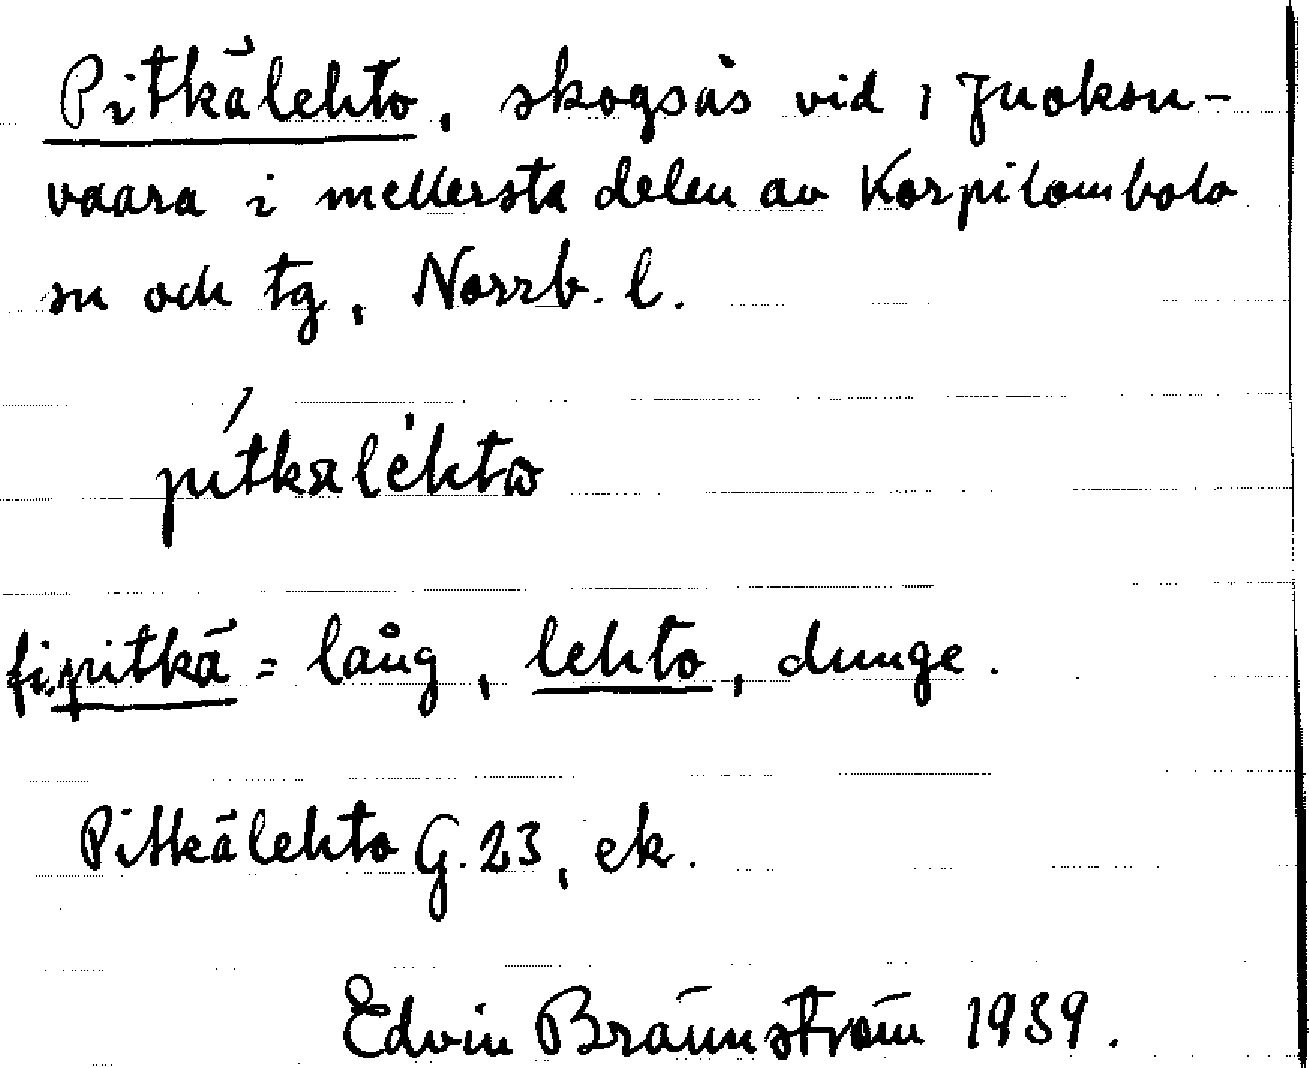 Pitkälehto, skogsås vid, Juoksu-
vaara i mellersta delen av Korpilombolo
sn och tg, Norrb. l.
pítkæléhtω
fi. pitkä = lång, lehto, dunge.
Pitkälehto G. 23, ek.
Edvin Brännström 1939.